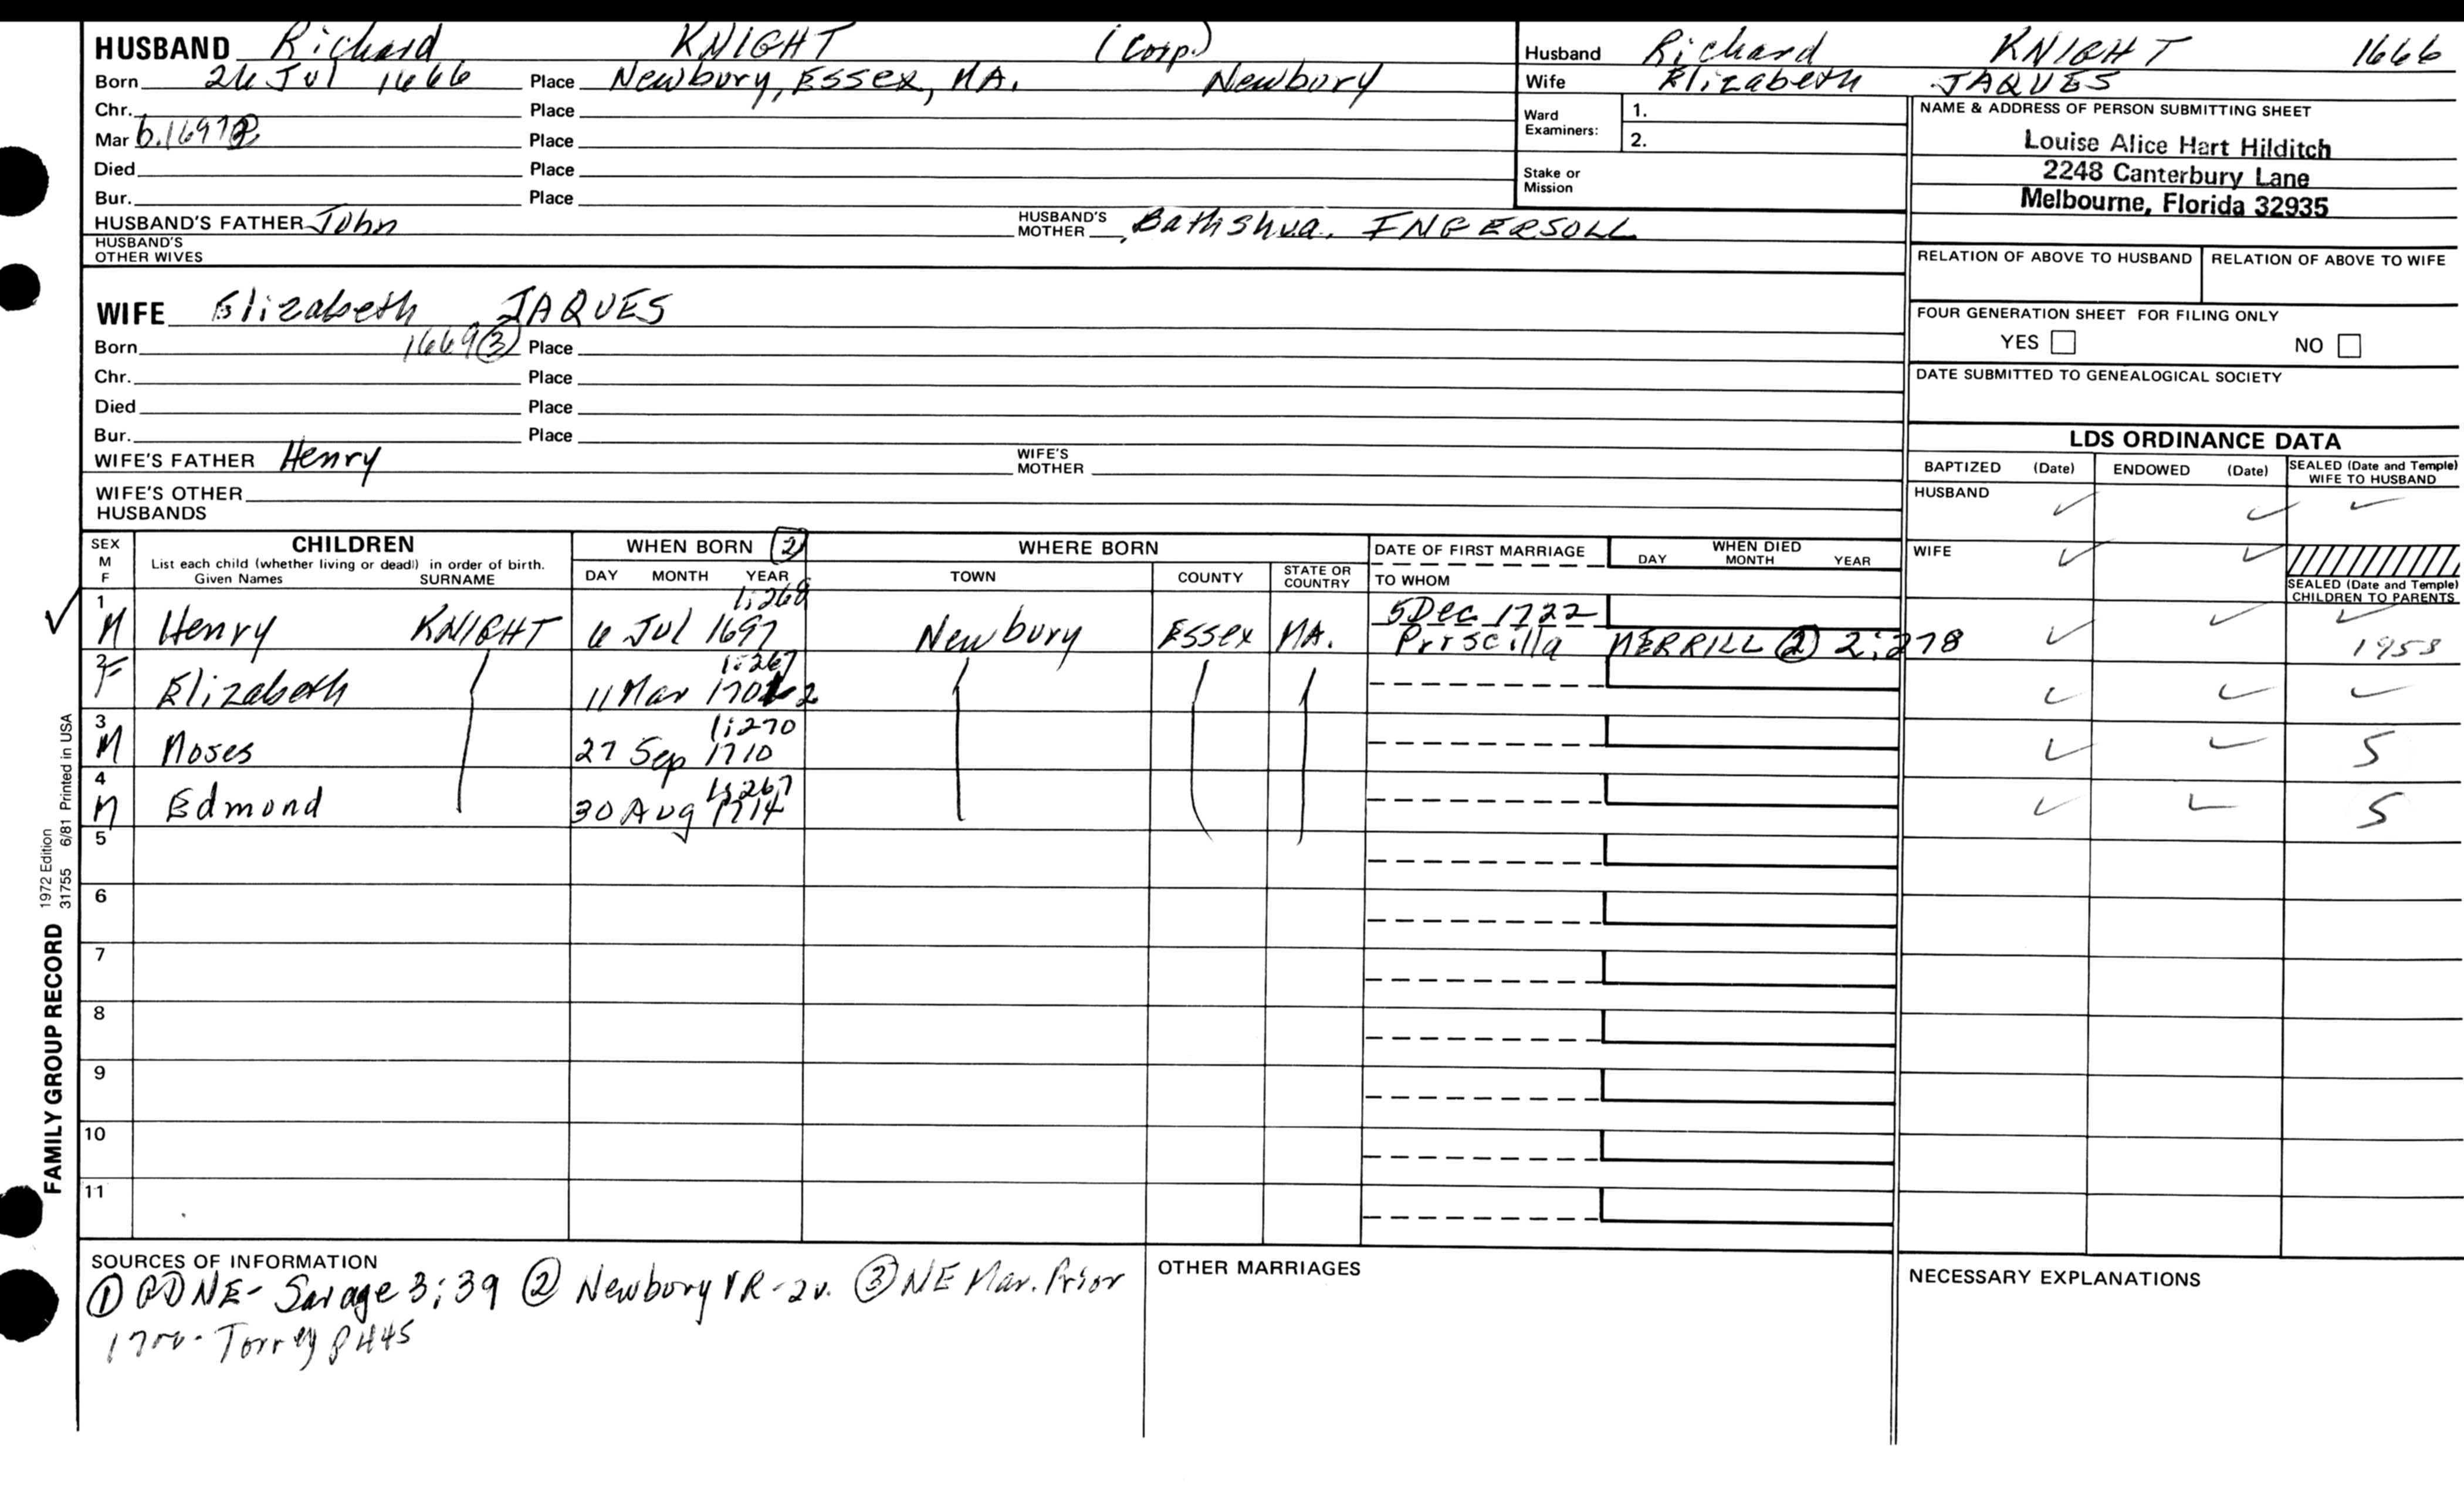 HUSBAND Richard KNIGHT (Corp.)
Born 26 Jul 1666 Place Newbury, Essex, MA. Newbury
Chr. Place
Mar b.1697 Place
Died Place
Bur. Place
HUSBAND'S FATHER John HUSBAND'S MOTHER Bathshua. INGERSOLL
HUSBAND'S OTHER WIVES
Husband Richard KNIGHT 1666
Wife Elizabeth JAQUES
Ward Examiners: 1.
2.
Stake or Mission
NAME & ADDRESS OF PERSON SUBMITTING SHEET
Louise Alice Hart Hilditch
2248 Canterbury Lane
Melbourne, Florida 32935
RELATION OF ABOVE TO HUSBAND RELATION OF ABOVE TO WIFE
FOUR GENERATION SHEET FOR FILING ONLY
YES NO
DATE SUBMITTED TO GENEALOGICAL SOCIETY
WIFE Elizabeth JAQUES
Born 1669 ③ Place
Chr. Place
Died Place
Bur. Place
WIFE'S FATHER Henry WIFE'S MOTHER
WIFE'S OTHER HUSBANDS
LDS ORDINANCE DATA
BAPTIZED (Date) ENDOWED (Date) SEALED (Date and Temple) WIFE TO HUSBAND
HUSBAND ✓ ✓ ✓
WIFE ✓ ✓
SEALED (Date and Temple) CHILDREN TO PARENTS
SEX M F
CHILDREN
List each child (whether living or dead) in order of birth.
Given Names SURNAME
WHEN BORN 2
DAY MONTH YEAR
WHERE BORN
TOWN COUNTY STATE OR COUNTRY
DATE OF FIRST MARRIAGE
TO WHOM
WHEN DIED
DAY MONTH YEAR
1:268 5 Dec 1722
✓ 1 M Henry KNIGHT 6 Jul 1697 Newbury Essex MA. Priscilla MERRILL ② 2:278 ✓ ✓ ✓ 1953
1:267
2 F Elizabeth 11 Mar 1702 ✓ ✓ ✓
1:270
3 M Moses 27 Sep 1710 ✓ ✓ S
1:267
4 M Edmond 30 Aug 1714 ✓ ✓ S
5
6
7
8
9
10
11
FAMILY GROUP RECORD 1972 Edition
31755 6/81 Printed in USA
SOURCES OF INFORMATION
① GDNE- Savage 3:39 ② Newbury VR-2v. ③ NE Mar. Prior
1700- Torrey p445
OTHER MARRIAGES
NECESSARY EXPLANATIONS